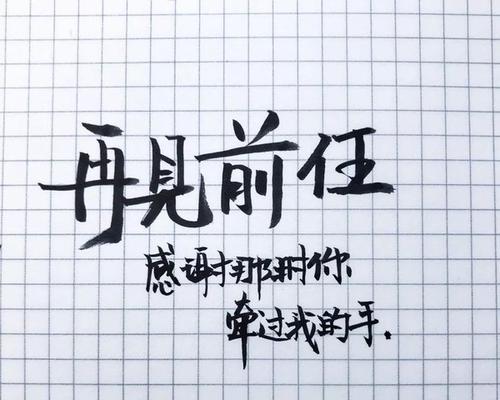 再見前任
感谢那时你
牵过我的手.